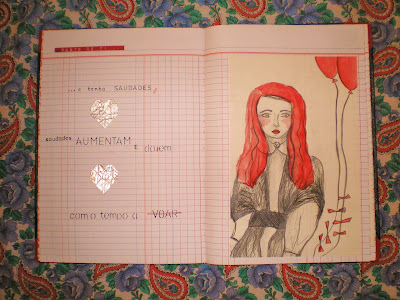 ...e tenho SAUDADES,
saudades AUMENTAM e doem
com o tempo a VOAR